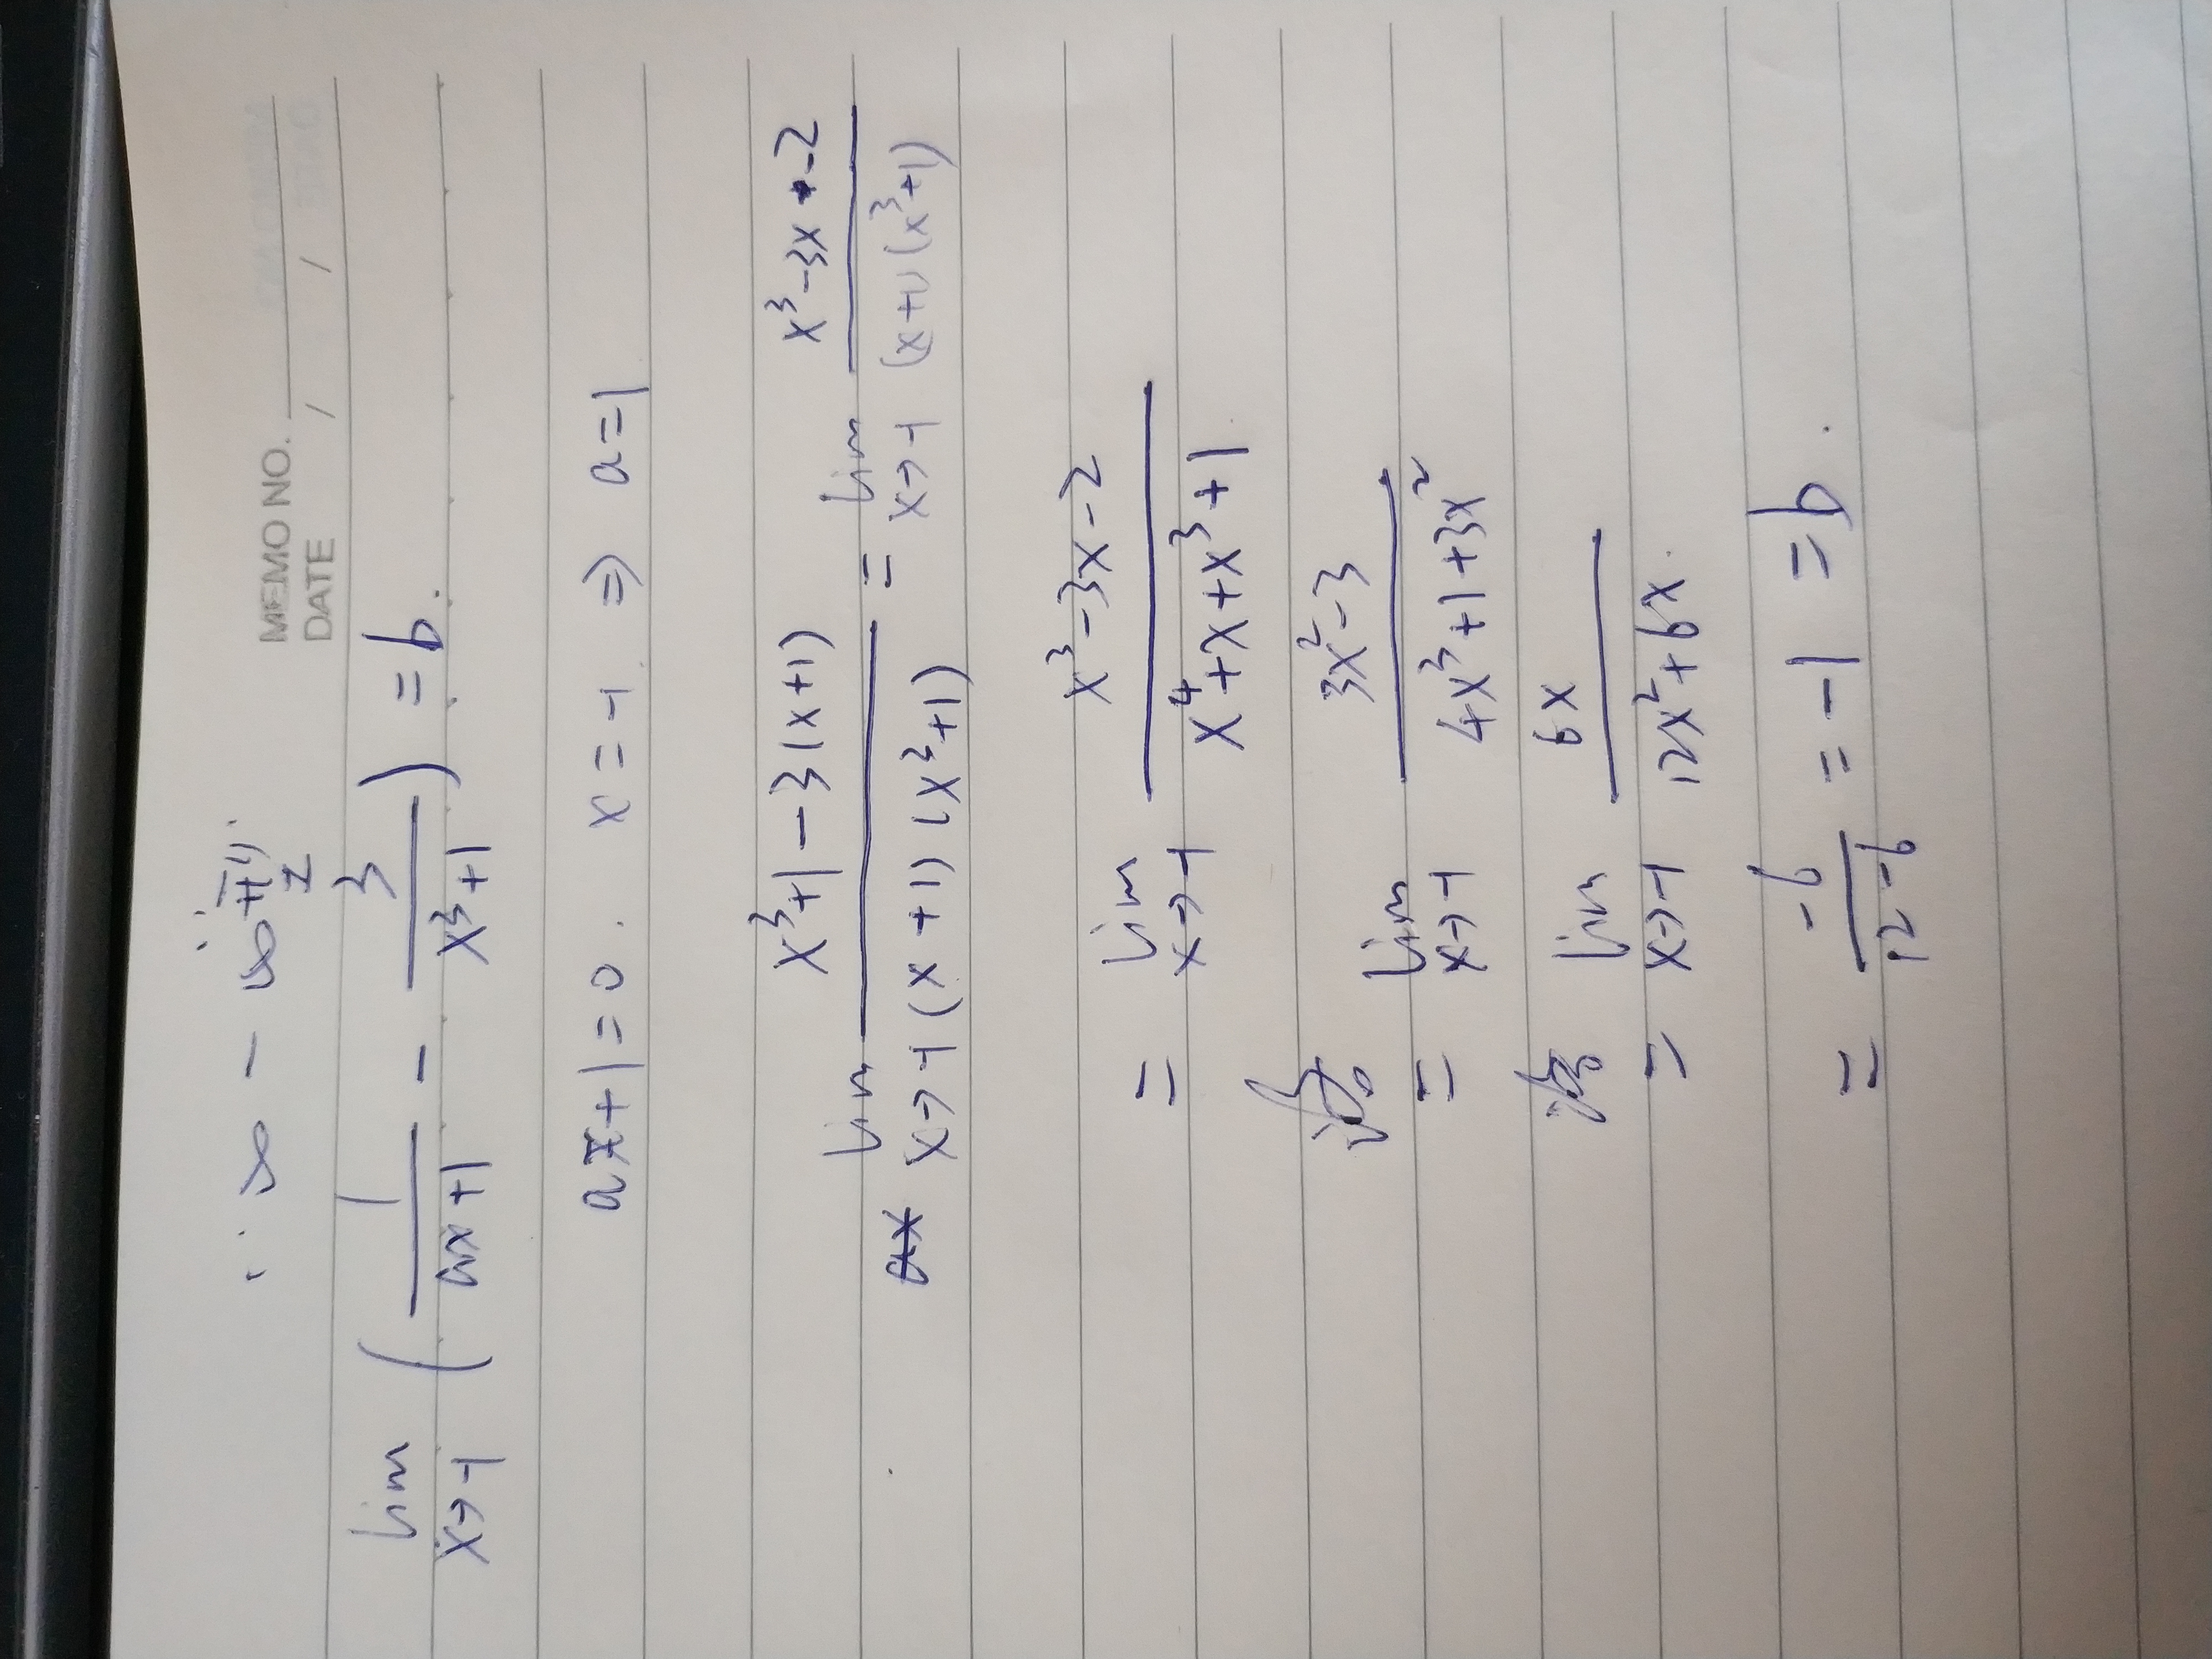 MEMO NO.
DATE / /
∵ ∞ - ∞
lim x→-1 ( 1/(ax+1) - 3/(x³+1) ) = b.
ax+1=0. x=-1. ⇒ a=1
lim x→-1 (x³+1-3(x+1))/((x+1)(x³+1)) = lim x→-1 (x³-3x-2)/((x+1)(x³+1))
= lim x→-1 (x³-3x-2)/(x⁴+x+x³+1)
洛 = lim x→-1 (3x²-3)/(4x³+1+3x²)
洛 = lim x→-1 6x/(12x²+6x).
= -6/(12-6) = -1 = b.